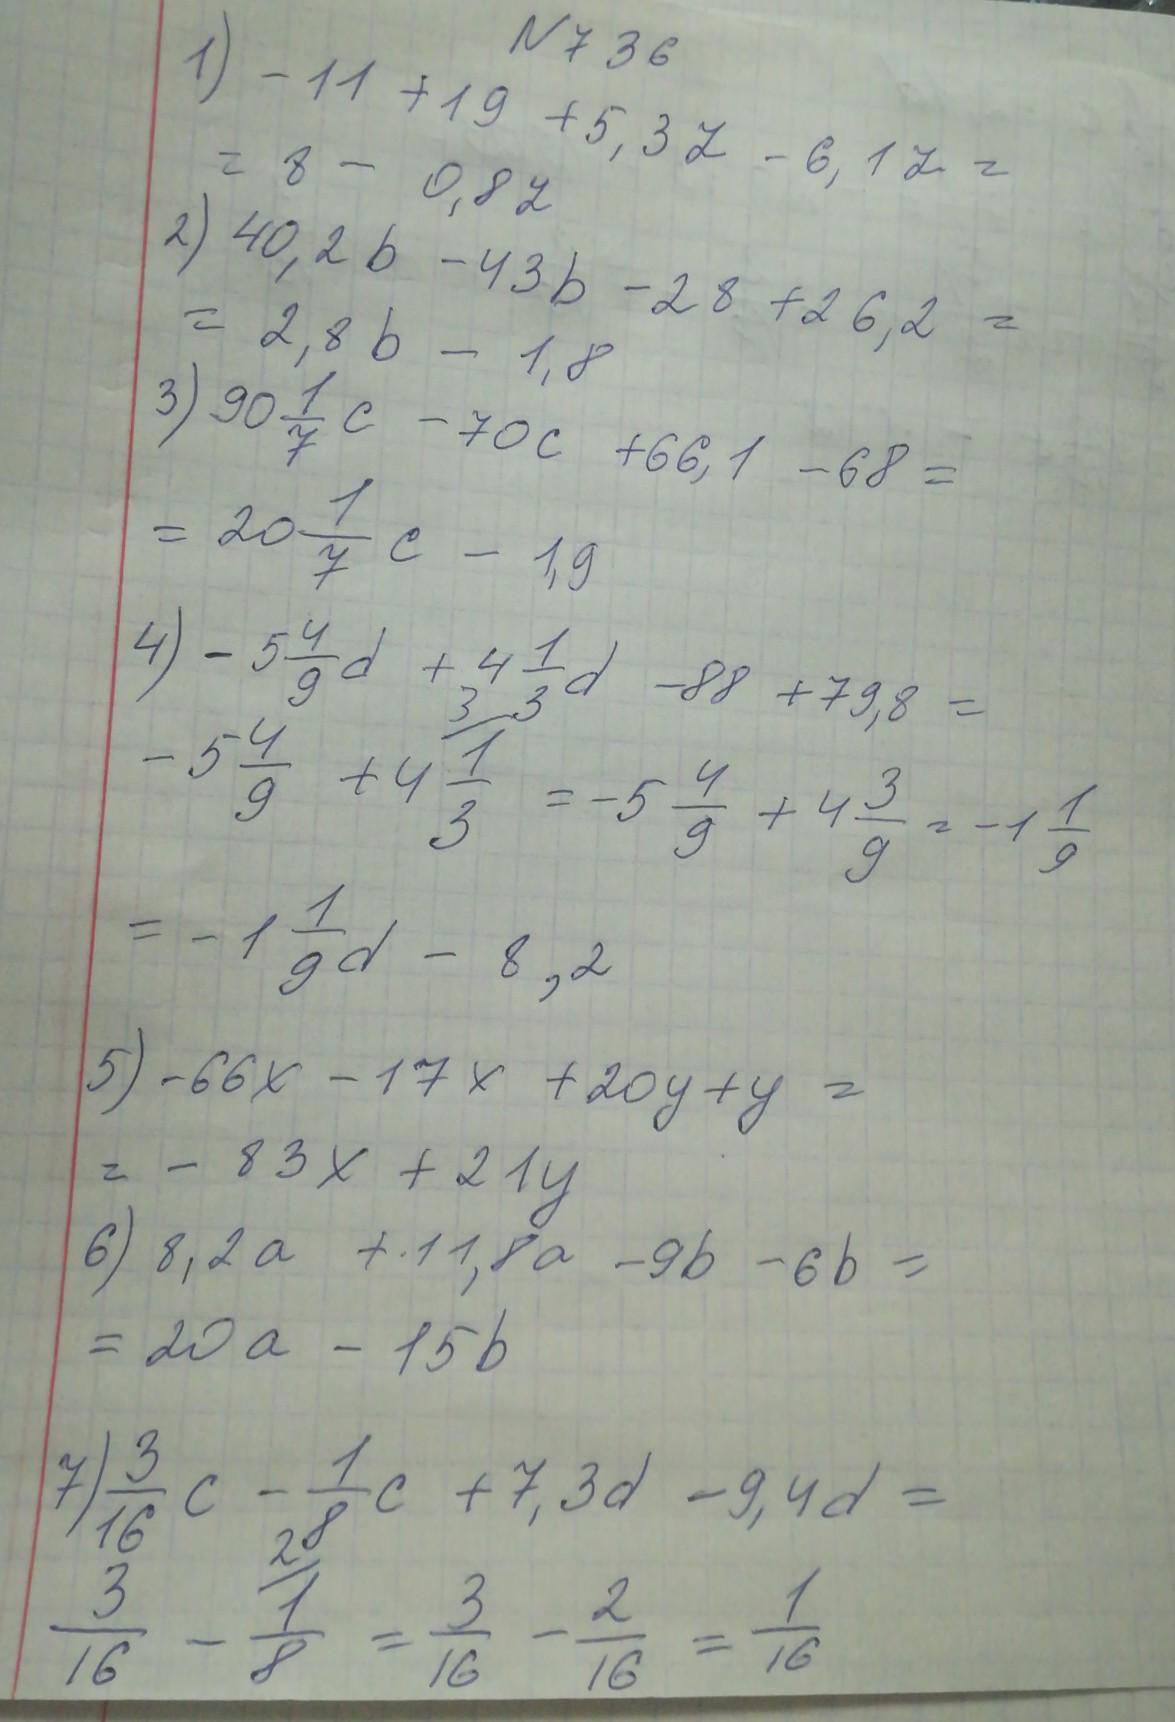 N736
1) -11 +19 +5,3z - 6,1z =
= 8 - 0,8z
2) 40,2b - 43b - 28 + 26,2 =
= 2,8b - 1,8
3) 90 1/7 c - 70c + 66,1 - 68 =
= 20 1/7 c - 1,9
4) - 5 4/9 d + 4 1/3 d - 88 + 79,8 =
- 5 4/9 + 4 1/3 (3 = - 5 4/9 + 4 3/9 = - 1 1/9
= - 1 1/9 d - 8,2
5) -66x - 17x + 20y + y =
= - 83x + 21y
6) 8,2a + 11,8a - 9b - 6b =
= 20a - 15b
7) 3/16 c - 1/8 c + 7,3d - 9,4d =
3/16 - 1/8 (2 = 3/16 - 2/16 = 1/16